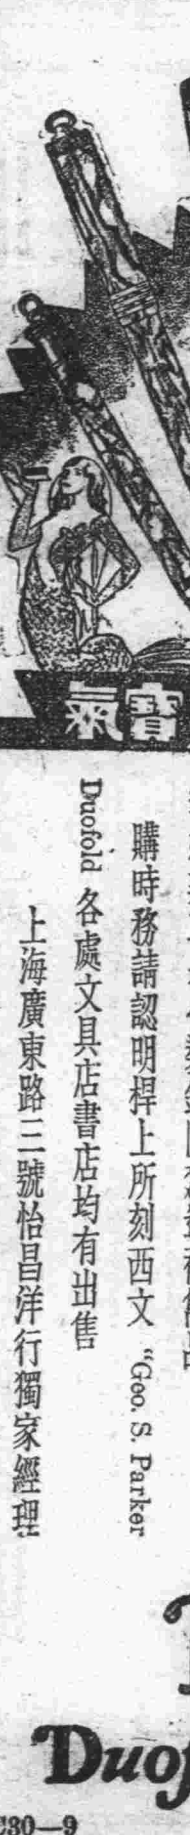 寶氣
購時務請認明桿上所刻西文 "Geo. S. Parker
Duofold 各處文具店書店均有出售
上海廣東路三號怡昌洋行獨家經理
Duof
C30—9